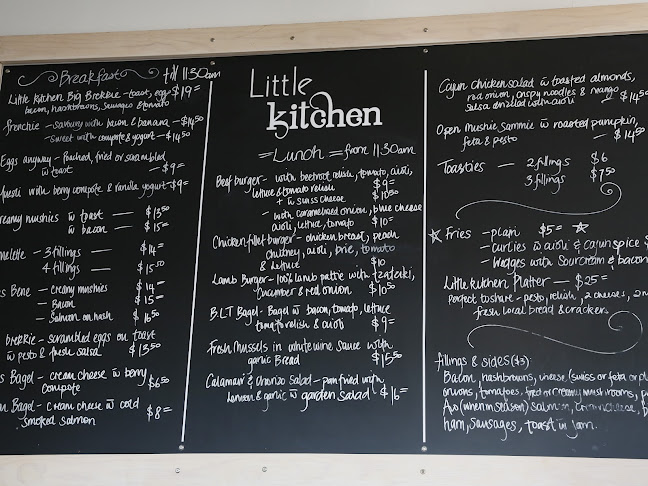 Breakfast till 11:30am
Little Kitchen Big Brekkie - toast, eggs $19=
bacon, hashbrowns, sausages & tomato
Frenchie - savoury with bacon & banana - $14.50
- sweet with compote & yogurt - $14.50
Eggs anyway - Poached, fried or scrambled
w toast - $9=
with berry compote & vanilla yogurt - $9=
mushies w toast - $13.50
w bacon - $15=
- 3 fillings - $14=
4 fillings - $15.50
Bene - creamy mushies $14=
- Bacon $15=
- Salmon on hash $16.50
brekkie - scrambled eggs on toast
w pesto & fresh salsa $13.50
Bagel - cream cheese w berry
compote $6.50
Bagel - cream cheese w cold
smoked salmon $8=
Little
kitchen
= Lunch = from 11:30am
Beef burger - with beetroot relish, tomato, aioli,
lettuce & tomato relish $9=
+ w swiss cheese $10.50
- with caramelized onion, blue cheese
aioli, lettuce, tomato $10=
Chicken fillet burger - chicken breast, peach
chutney, aioli, brie, tomato
& lettuce $10
Lamb Burger - 100% lamb pattie with tzatziki,
cucumber & red onion $10.50
B.L.T Bagel - Bagel w bacon, tomato, lettuce
tomato relish & aioli $9=
Fresh Mussels in white wine sauce with
garlic Bread $15.50
Calamari & chorizo Salad - pan fried with
lemon & garlic w garden salad $16=
Cajun chicken salad w toasted almonds,
red onion, crispy noodles & mango
salsa drizzled with aioli $14.50
Open mushie sammie w roasted pumpkin,
feta & pesto - $14.50
Toasties - 2 fillings $6
3 fillings $7.50
Fries - plain $5=
- curlies w aioli & cajun spice $
- Wedges with sourcream & bacon
Little kitchen Platter - $25=
Perfect to share - pesto, relish, 2 cheeses, 2
fresh local bread & crackers
fillings & sides ($3)
Bacon, hashbrowns, cheese (swiss or feta or
onions, tomatoes, fried or creamy mushrooms,
Avo (when in season) salmon, creamcheese,
ham, sausages, toast w jam.